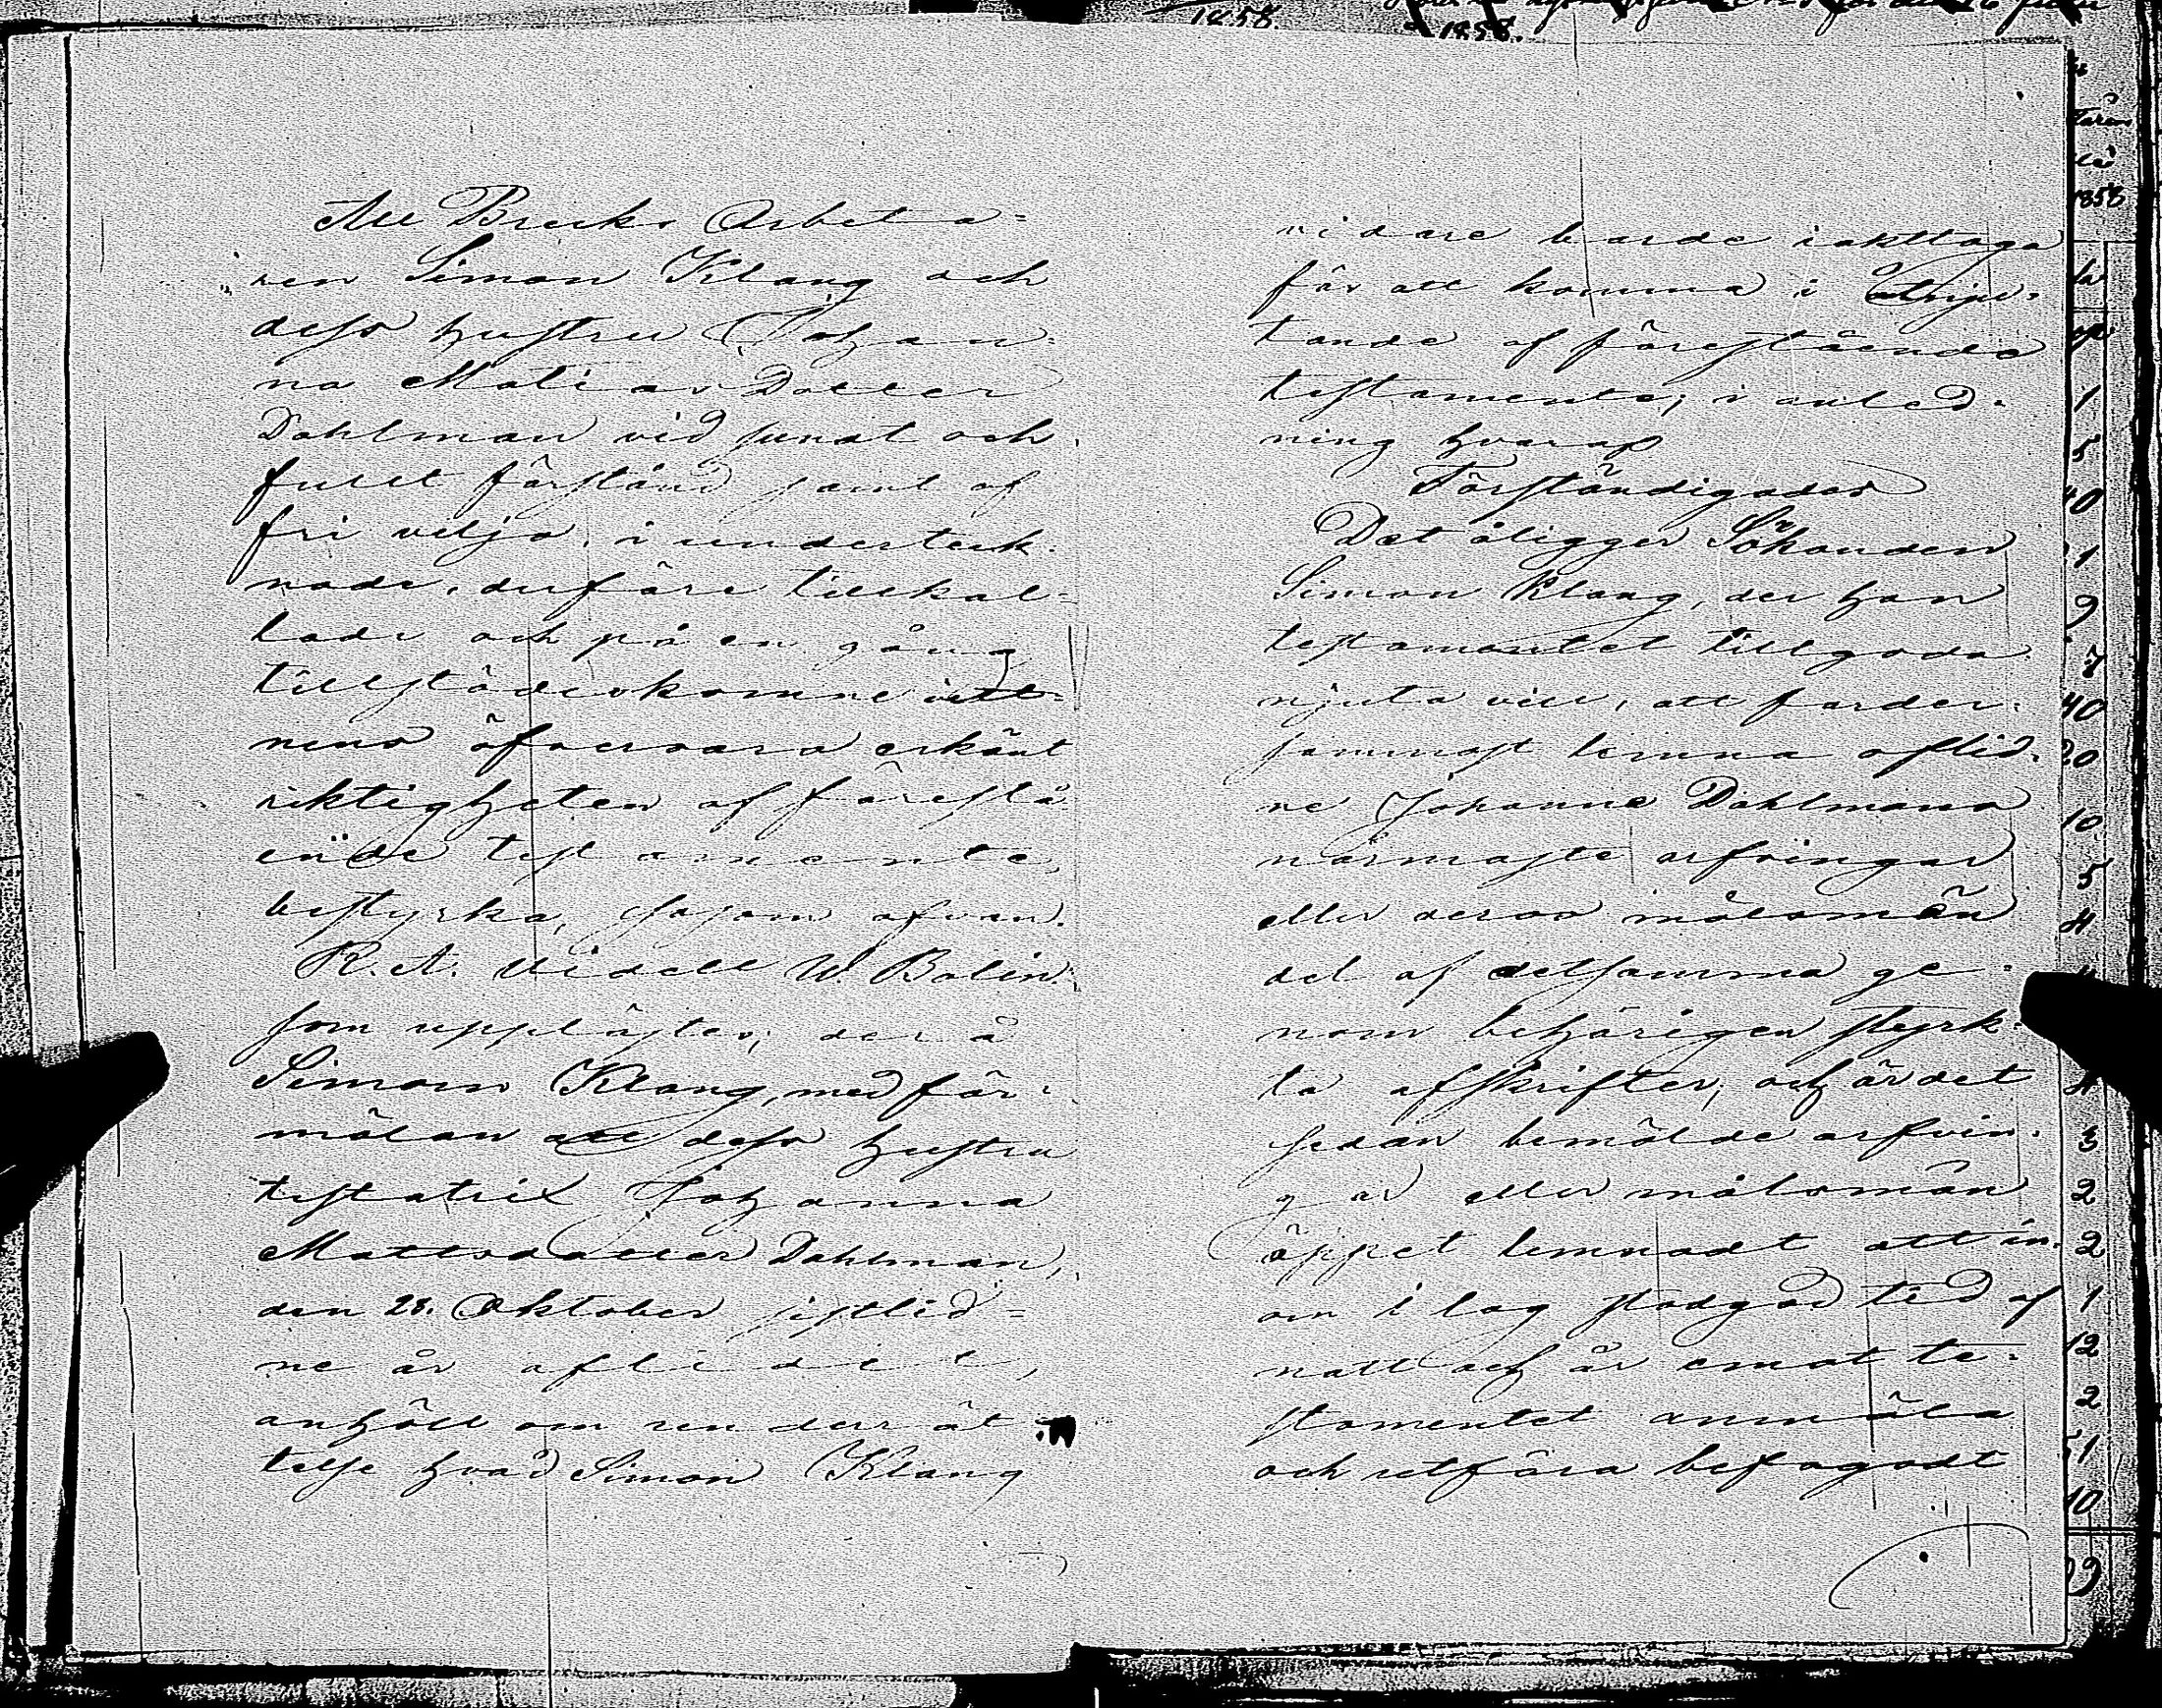 1858.
1858.
Att Bruks Arbeta=
ren Simon Klang och
dess hustru Johan=
na Matiasdotter
Dahlman vid sundt och
fullt förstånd samt af
fri vilja, i underteck=
nade, derföre tillkal=
lade och på en gång
tillstädeskomne vitt=
nens öfvervaro erkänt
riktigheten af förestå
ende testamente,
bestyrka, Sosom ofvan.
R. A. Widell W. Bolin.
som upplästes, der å
Simon Klang, med för=
mälan att dess hustru
testatrix Johanna
Mattsdotter Dahlman,
den 28. Oktober sistlid=
ne år aflidit,
anhöll om underrät
telse hvad Simon Klang
vidare borde iakttaga
för att komma i åtnju=
tande af förestående
testamente; i anled=
ning hvaraf
Förständigades
Det åligger Sökanden
Simon Klang, der han
testamentet tillgodo
njuta vill, att forder=
sammast lemna aflid=
ne Johanna Dahlmans
närmaste arfvingar
eller deras målsmän
del af detsamma ge=
nom behörigen styrk=
ta afskrifter, och är det
sedan bemälde arfvin=
gar eller målsmän
öppet lemnadt att in=
om i lag stadgad tid af
natt och år emot te=
stamentet anmäla
och utföra befogadt